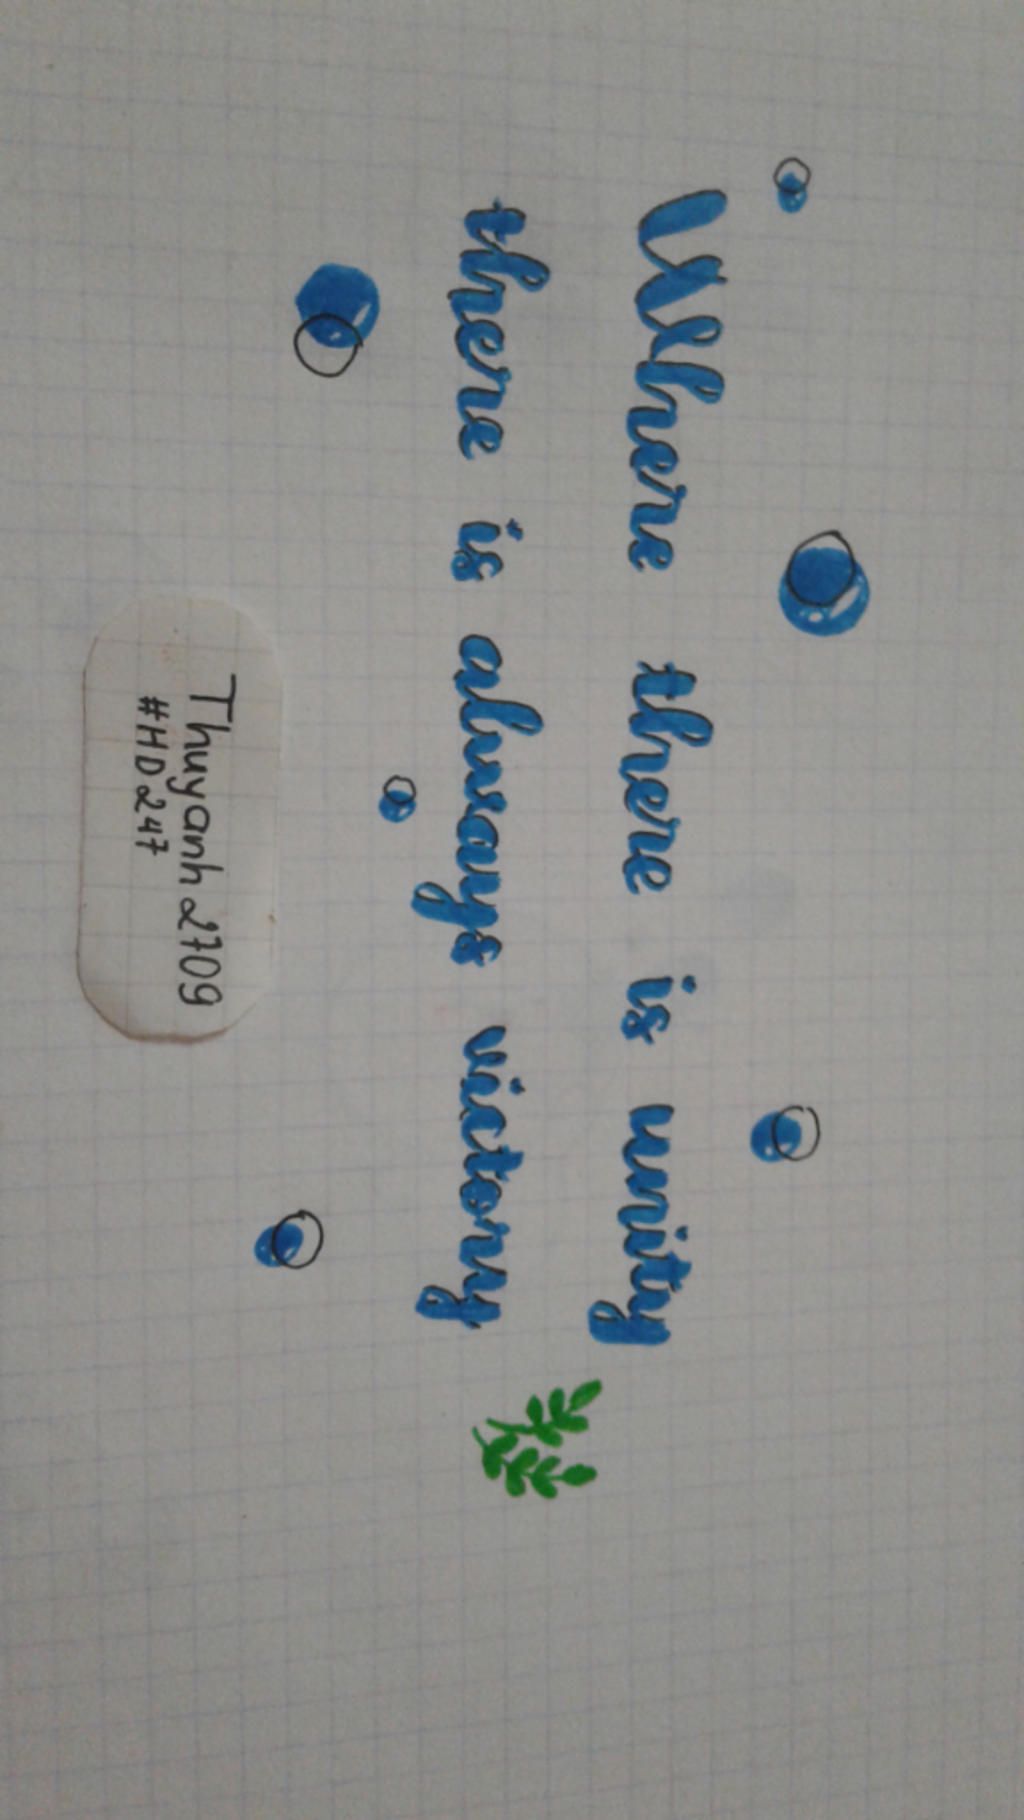 Where there is unity
there is always victory
Thuyanh2709
#HD247